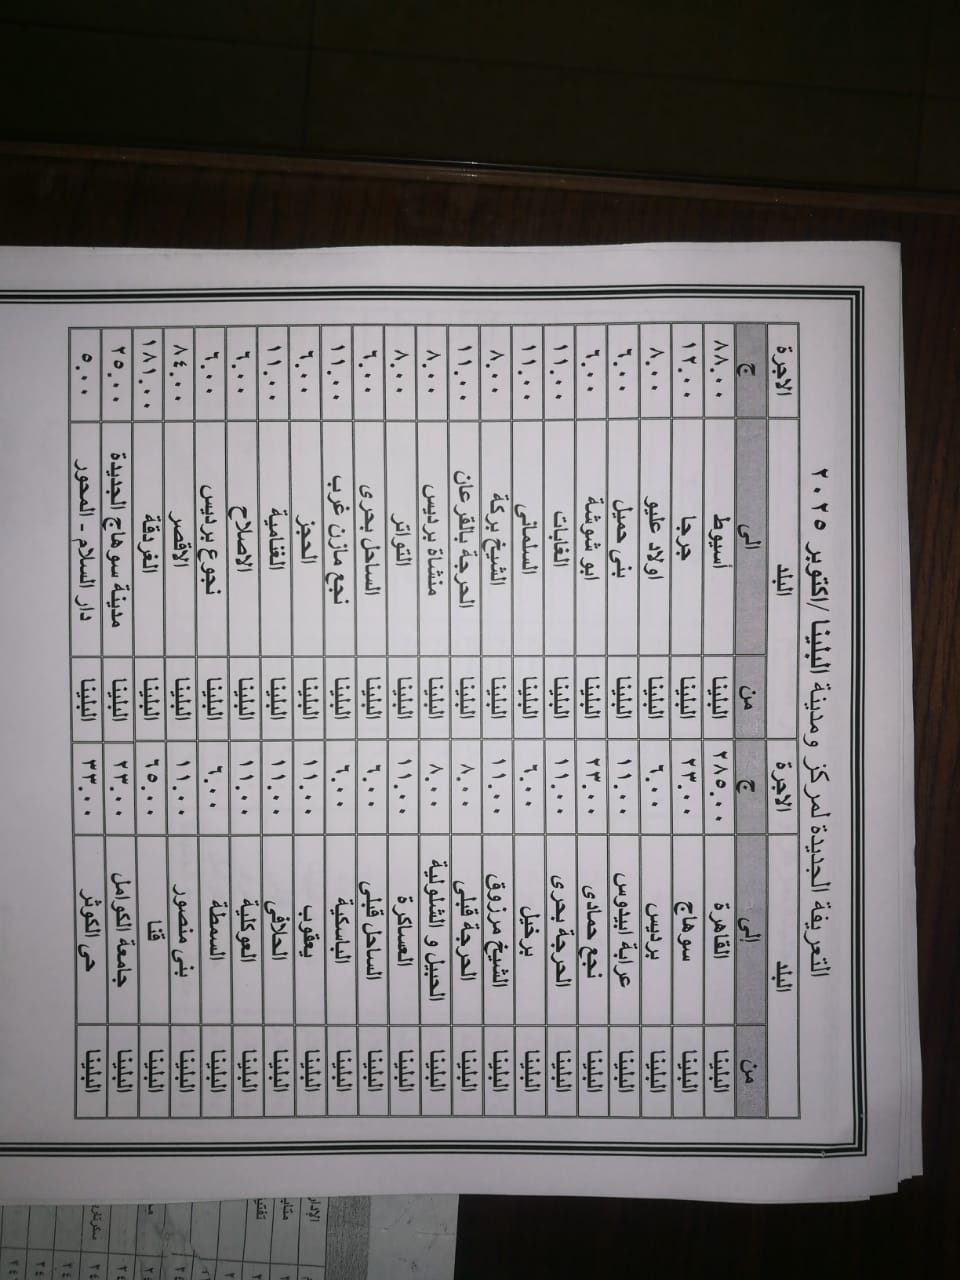 التعريفة الجديدة لمركز ومدينة البلينا /اكتوبر ٢٠٢٥
البلد الاجرة البلد الاجرة
من الى ج من الى ج
البلينا القاهرة ٢٨٥.٠٠ البلينا أسيوط ٨٨.٠٠
البلينا سوهاج ٢٣.٠٠ البلينا جرجا ١٢.٠٠
البلينا برديس ٦.٠٠ البلينا اولاد عليو ٨.٠٠
البلينا عرابة ابيدوس ١١.٠٠ البلينا بنى حميل ٦.٠٠
البلينا نجع حمادى ٢٣.٠٠ البلينا ابو شوشة ٦.٠٠
البلينا الحرجة بحرى ١١.٠٠ البلينا الغابات ١١.٠٠
البلينا برخيل ٦.٠٠ البلينا السلمانى ١١.٠٠
البلينا الشيخ مرزوق ١١.٠٠ البلينا الشيخ بركة ٨.٠٠
البلينا الحرجة قبلى ٨.٠٠ البلينا الحرجة بالقرعان ١١.٠٠
البلينا الحبيل و الشلولية ٨.٠٠ البلينا منشاة برديس ٨.٠٠
البلينا العساكرة ١١.٠٠ البلينا التواتر ٨.٠٠
البلينا الساحل قبلى ٦.٠٠ البلينا الساحل بحرى ٦.٠٠
البلينا الباسكية ٦.٠٠ البلينا نجع مازن غرب ١١.٠٠
البلينا يعقوب ١١.٠٠ البلينا الحجز ٦.٠٠
البلينا الحلافى ١١.٠٠ البلينا الغنامية ١١.٠٠
البلينا العوكلية ١١.٠٠ البلينا الاصلاح ٦.٠٠
البلينا السمطة ٦.٠٠ البلينا نجوع برديس ٦.٠٠
البلينا بنى منصور ١١.٠٠ البلينا الاقصر ٨٤.٠٠
البلينا قنا ٦٥.٠٠ البلينا الغردقة ١٨١.٠٠
البلينا جامعة الكوامل ٢٣.٠٠ البلينا مدينة سوهاج الجديدة ٢٥.٠٠
البلينا حى الكوثر ٣٣.٠٠ البلينا دار السلام - المحور ٥.٠٠